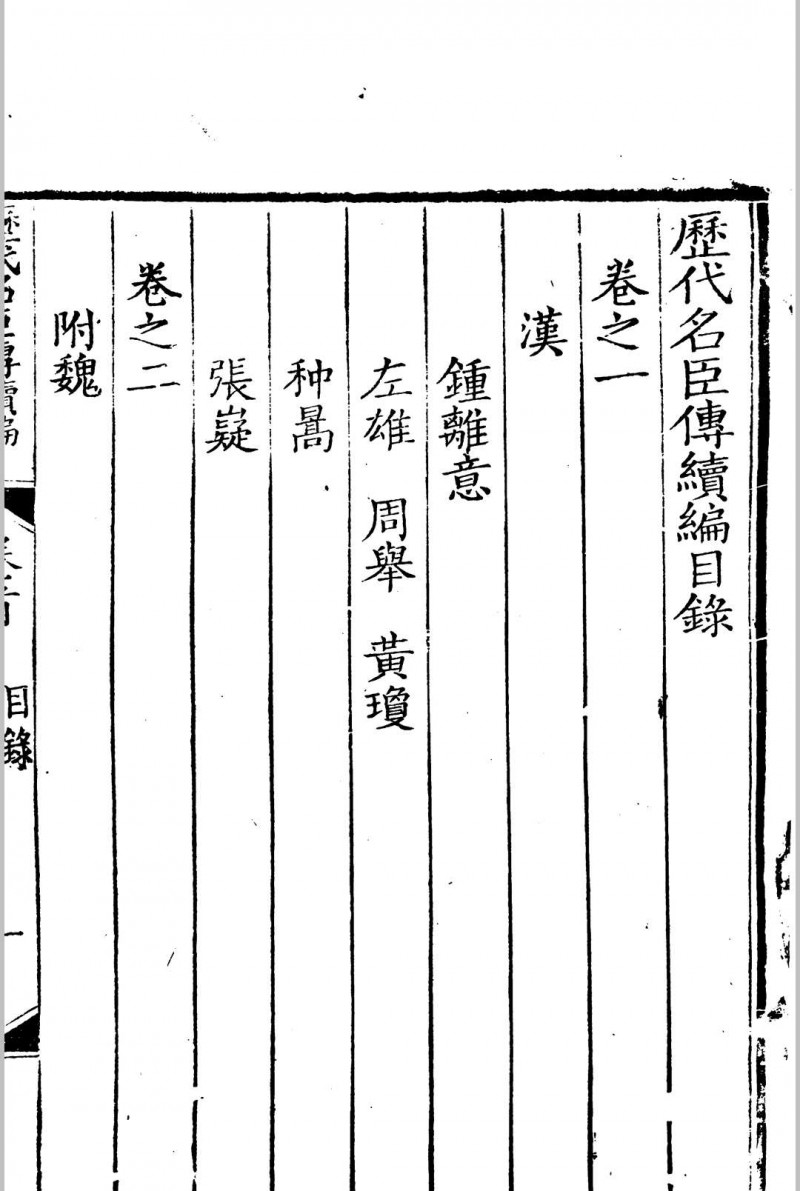 歷代名臣傳續編目錄
卷之一
漢
鍾離意
左雄 周舉 黃瓊
种暠
張嶷
卷之二
附魏
歷代名臣傳續編
目錄
一